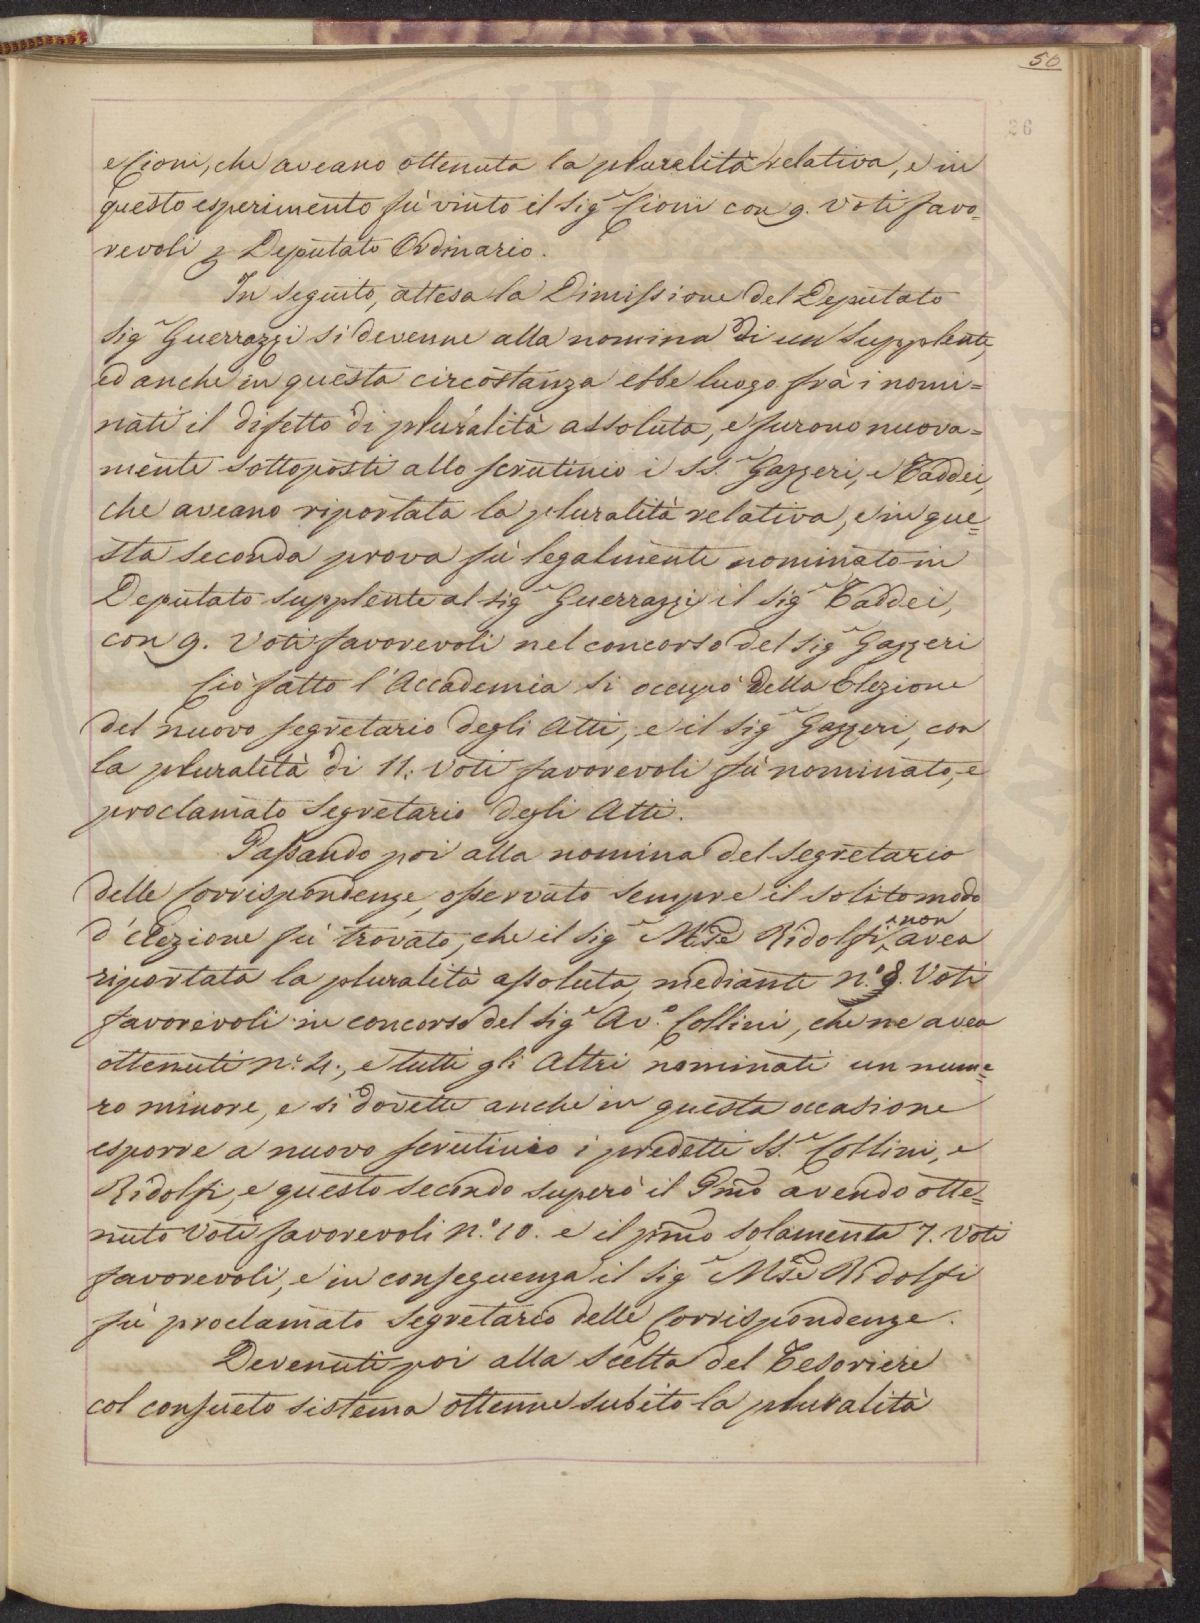 50
26
e Cioni, che aveano ottenuta la pluralità relativa, e in
questo esperimento fù vinto il Sig.r Cioni con 9. voti favo-
revoli p Deputato Ordinario.
In seguito, attesa la Dimissione del Deputato
Sig.r Guerrazzi si devenne alla nomina di un Supplente,
ed anche in questa circostanza ebbe luogo frà i nomi=
nati il difetto di pluralità assoluta, e furono nuova=
mente sottoposti allo scrutinio i SS.ri Gazzeri, e Taddei,
che aveano riportata la pluralità relativa, e in que=
sta seconda prova fù legalmente nominato in
Deputato supplente al Sig.r Guerrazzi il Sig.r Taddei,
con 9. Voti favorevoli nel concorso del Sig.r Gazzeri
Ciò fatto l'Accademia si occupò della Elezione
del nuovo Segretario degli Atti, e il Sig.r Gazzeri, con
la pluralità di 11. Voti favorevoli fù nominato, e
proclamato Segretario degli Atti.
Passando poi alla nomina del Segretario
delle Corrispondenze, osservato sempre il solito modo
d'elezione fù trovato, che il Sig.r M.se Ridolfi, non avea
riportata la pluralità assoluta, mediante N.° 8. Voti
favorevoli in concorso del Sig.r Av.o Collini, che ne avea
ottenuti N.° 4., e tutti gli Altri nominati un nume=
ro minore, e si dovette anche in questa occasione
esporre a nuovo scrutinio i predetti SS.ri Collini, e
Ridolfi, e questo secondo superò il Pmo avendo otte=
nuto Voti favorevoli N.° 10. e il pmo solamenta 7. Voti
favorevoli, e in conseguenza il Sig.r M.se Ridolfi
fù proclamato Segretario delle Corrispondenze.
Devenuti poi alla scelta del Tesoriere
col consueto sistema ottenne subito la pluralità